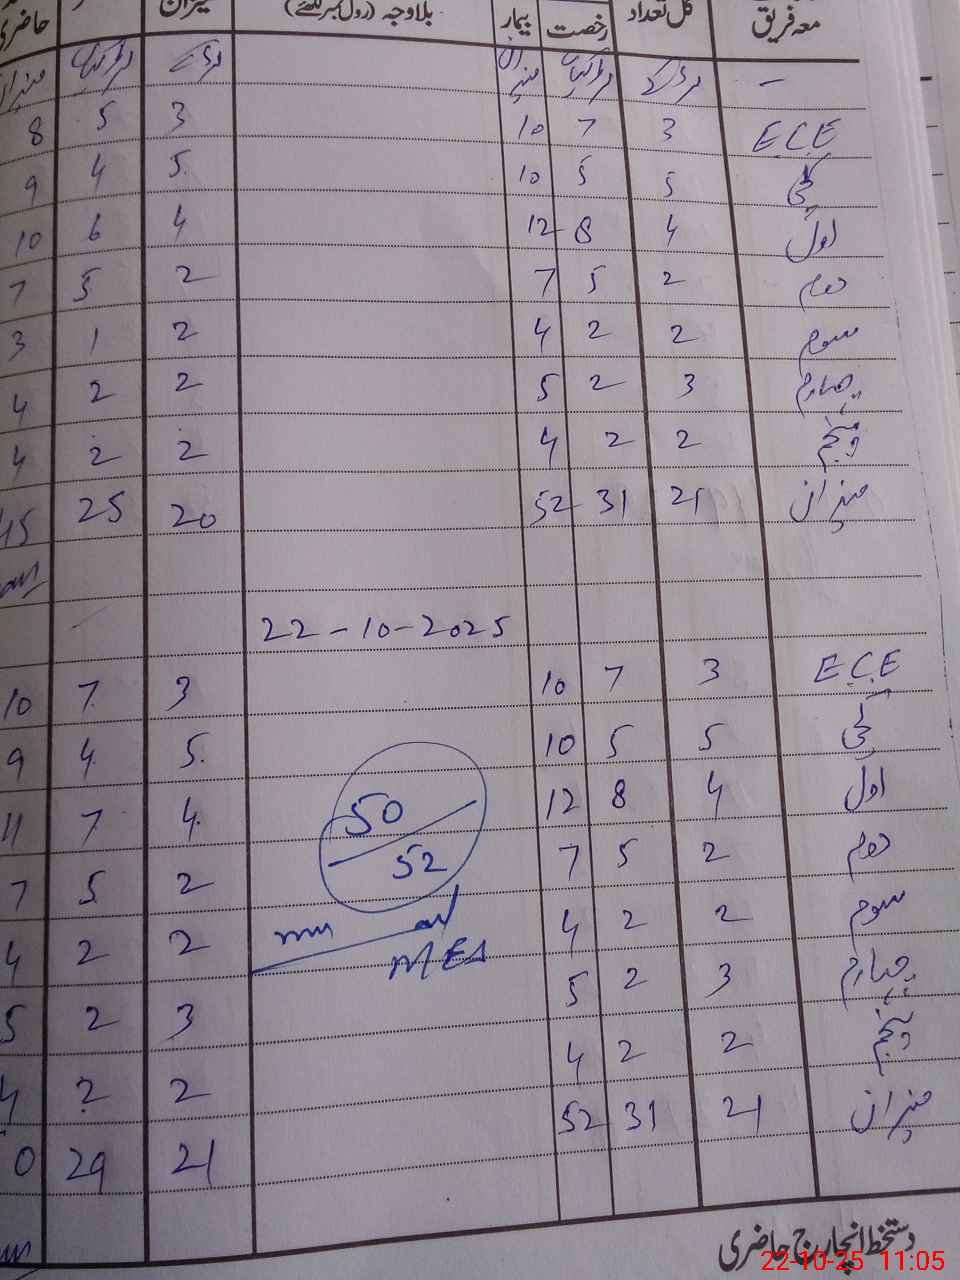 معہ فریق کل تعداد رخصت بیمار بلاوجہ (رول نمبر لکھئے) میزان حاضری
— لڑکے لڑکیاں میزان لڑکے لڑکیاں میزان
ECE 3 7 10 3 5 8
کچی 5 5 10 5 4 9
اول 4 8 12 4 6 10
دوم 2 5 7 2 5 7
سوم 2 2 4 2 1 3
چہارم 3 2 5 2 2 4
پنجم 2 2 4 2 2 4
میزان 21 31 52 20 25 45
22-10-2025
ECE 3 7 10 3 7 10
کچی 5 5 10 5 4 9
اول 4 8 12 4 7 11
دوم 2 5 7 2 5 7
سوم 2 2 4 2 2 4
چہارم 3 2 5 3 2 5
پنجم 2 2 4 2 2 4
میزان 21 31 52 21 29 0
50
52
MEA
دستخط انچارج حاضری
22-10-25 11:05